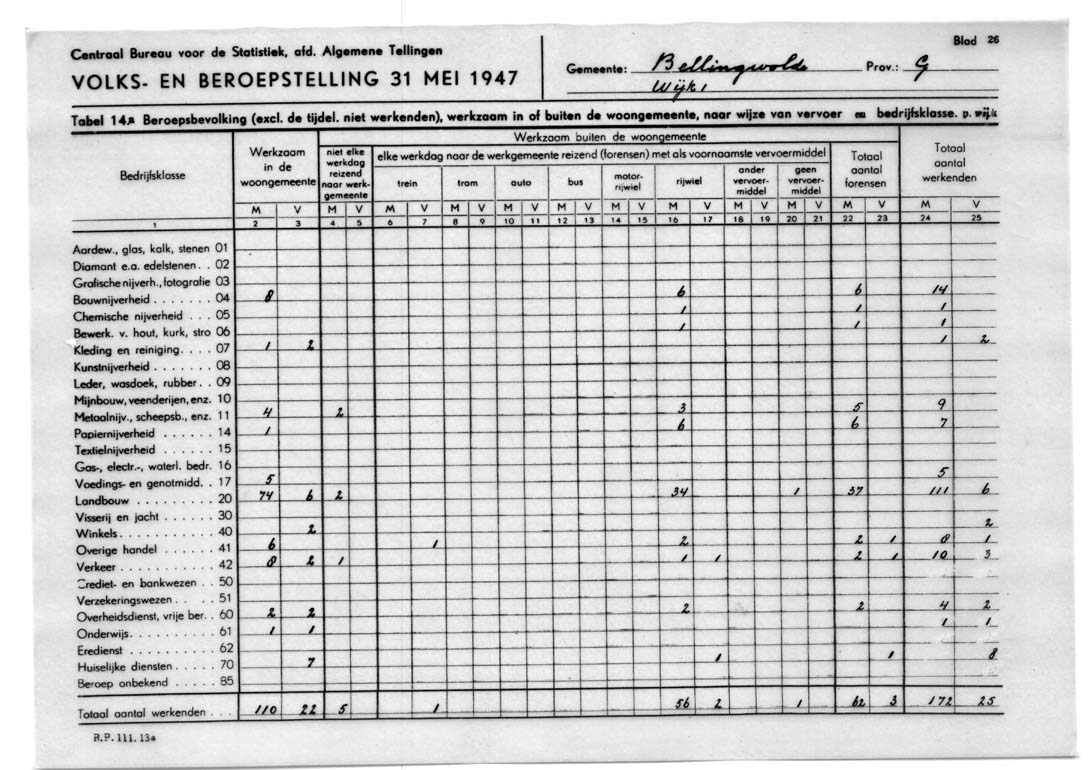 Centraal Bureau voor de Statistiek, afd. Algemene Tellingen
VOLKS- EN BEROEPSTELLING 31 MEI 1947
Gemeente: Bellingwolde Prov.: G
Wijk 1
Blad 26
Tabel 14.a Beroepsbevolking (excl. de tijdel. niet werkenden), werkzaam in of buiten de woongemeente, naar wijze van vervoer en bedrijfsklasse. p. wijk
Bedrijfsklasse
Werkzaam in de woongemeente
Werkzaam buiten de woongemeente
niet elke werkdag reizend naar werkgemeente
elke werkdag naar de werkgemeente reizend (forensen) met als voornaamste vervoermiddel
trein tram auto bus motor-rijwiel rijwiel ander vervoer-middel geen vervoer-middel
Totaal aantal forensen
Totaal aantal werkenden
M V M V M V M V M V M V M V M V M V M V M V M V
1 2 3 4 5 6 7 8 9 10 11 12 13 14 15 16 17 18 19 20 21 22 23 24 25
Aardew., glas, kalk, stenen 01
Diamant e.a. edelstenen . . 02
Grafische nijverh., fotografie 03
Bouwnijverheid . . . . . . . 04 8 6 6 14
Chemische nijverheid . . . 05 1 1 1
Bewerk. v. hout, kurk, stro 06 1 1 1
Kleding en reiniging. . . . 07 1 2 1 2
Kunstnijverheid . . . . . . 08
Leder, wasdoek, rubber. . 09
Mijnbouw, veenderijen, enz. 10
Metaalnijv., scheepsb., enz. 11 4 2 3 5 9
Papiernijverheid . . . . . . 14 1 6 6 7
Textielnijverheid . . . . . . 15
Gas-, electr.-, waterl. bedr. 16
Voedings- en genotmidd. . 17 5 5
Landbouw . . . . . . . . . 20 74 6 2 34 1 37 111 6
Visserij en jacht . . . . . . 30
Winkels. . . . . . . . . . . 40 2 2
Overige handel . . . . . . 41 6 1 2 2 1 8 1
Verkeer . . . . . . . . . . 42 8 2 1 1 1 2 1 10 3
Crediet- en bankwezen . . 50
Verzekeringswezen . . . . 51
Overheidsdienst, vrije ber. . 60 2 2 2 2 4 2
Onderwijs. . . . . . . . . . 61 1 1 1 1
Eredienst . . . . . . . . . 62
Huiselijke diensten . . . . . 70 7 1 1 8
Beroep onbekend . . . . . 85
Totaal aantal werkenden . . . 110 22 5 1 56 2 1 62 3 172 25
R.P. 111. 13a